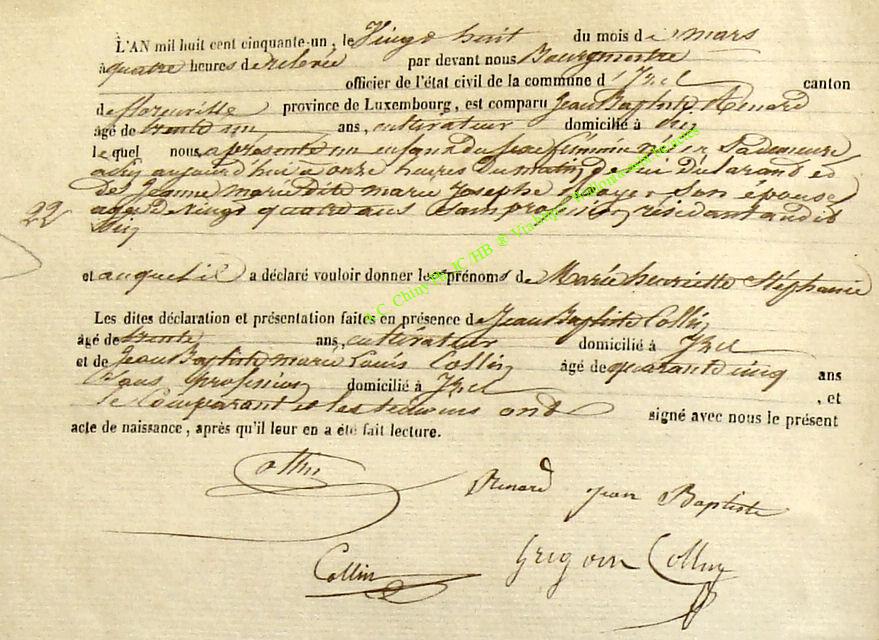 L'AN mil huit cent cinquante-un, le Vingt huit du mois de mars
à quatre heures de relevée par devant nous Bourgmestre
officier de l'état civil de la commune d' Izel canton
de florenville province de Luxembourg, est comparu Jean Baptiste Renard
âgé de trente un ans, cultivateur domicilié à
lequel nous a présenté un enfant du sexe féminin né en sa demeure
aujourd'hui à onze heures du matin, de lui déclarant et
de Jeanne marie dite marie Josephe son épouse
agée de Vingt quatre ans sans profession résidant audit
22
et auquel il a déclaré vouloir donner les prénoms de Marie henriette Stéphanie
Les dites déclaration et présentation faites en présence de Jean Baptiste Collin
âgé de trente ans, cultivateur domicilié à Izel
et de Jean Baptiste marie Louis Collin âgé de quarante cinq ans
Sans profession domicilié à Izel , et
le Comparant et les témoins ont signé avec nous le présent
acte de naissance, après qu'il leur en a été fait lecture.
Collin
Renard jean Baptiste
Collin
Grégoire Collin
A.C. Chiny
JC/HB @